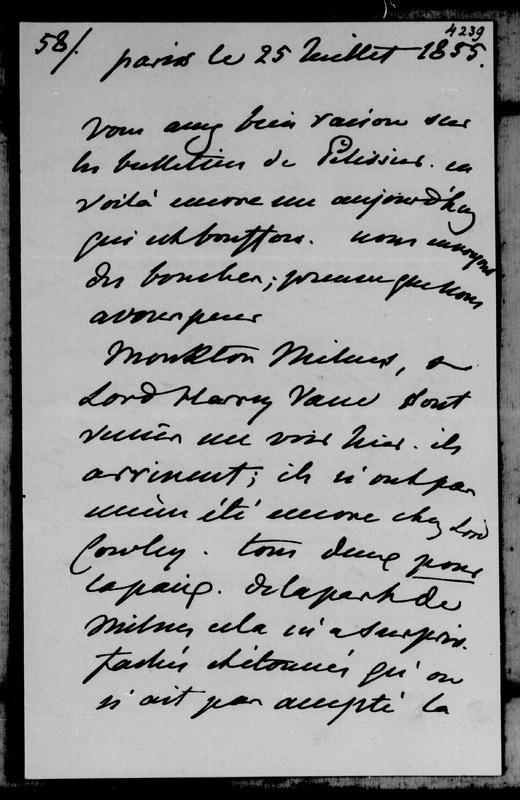 58/.
4239
paris le 25 Juillet 1855.
vous avez bien raison sur
les bulletins de Pélissier. en
voilà encore un aujourd'huy
qui est bouffon. nous envoyons
des bombes; preuve que nous
avons peur
Monkton Milnes, &
Lord Harry Vane sont
venus me voir hier. ils
arrivent; ils n'ont pas
même été encore chez Lord
Cowley. tous deux pour
la paix. de la part de
Milnes cela m'a surpris.
fachés & étonnés qu'on
n'ait pas accepté la